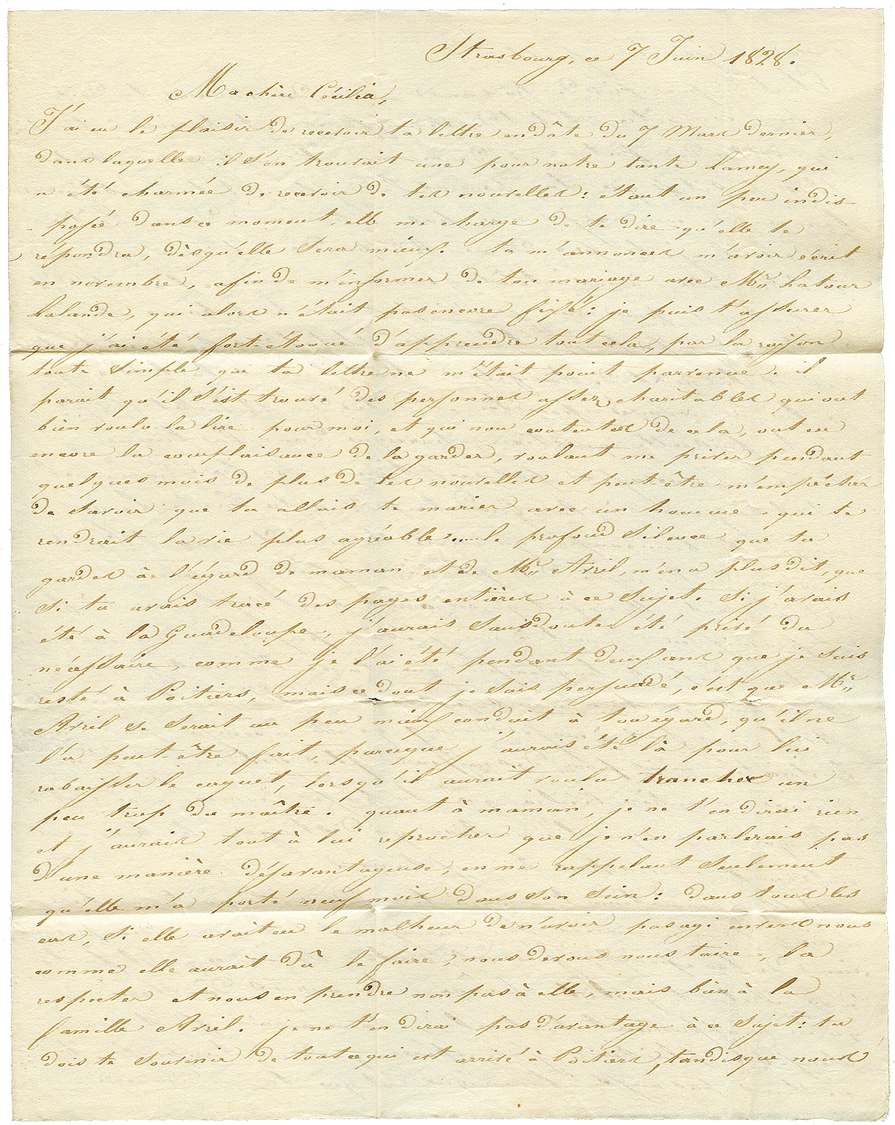 Strasbourg, ce 7 Juin 1828.
Ma chère Cécilia,
J'ai eu le plaisir de recevoir ta lettre en dâte du 7 Mars dernier,
dans laquelle il s'en trouvait une pour notre tante Lamey, qui
a été charmée de recevoir de tes nouvelles : étant un peu indis-
posée dans ce moment, elle me charge de te dire qu'elle te
répondra, dèsqu'elle sera mieux. tu m'annonces m'avoir écrit
en novembre, afin de m'informer de ton mariage avec Mr. Latour
Lalande, qui alors n'était pas encore fixé : je puis t'assurer
que j'ai été fort étonné d'apprendre tout cela, par la raison
toute simple que ta lettre ne m'était point parvenue. il
parait qu'il s'est trouvé des personnes assez charitables qui ont
bien voulu la lire pour moi, et qui non contentes de cela, ont eu
encore la complaisance de la garder, voulant me priver pendant
quelques mois de plus de tes nouvelles et peut être m'empêcher
de savoir que tu allais te marier avec un homme qui te
rendrait la vie plus agréable .... le profond silence que tu
gardes à l'égard de maman et de Mr. Avril, m'en a plus dit, que
si tu avais tracé des pages entières à ce sujet. Si j'avais
été à la Guadeloupe, j'aurais sans doute été privé du
nécessaire, comme je l'ai été pendant deux ans que je suis
resté à Poitiers, mais ce dont je suis persuadé, c'est que Mr.
Avril se serait un peu mieux conduit à ton égard, qu'il ne
l'a peut-être fait, parceque j'aurais été là pour lui
rabaisser le caquet, lorsqu'il aurait voulu trancher un
peu trop du maître. quant à maman, je ne t'en dirai rien
et j'aurais tout à lui reprocher que je n'en parlerais pas
d'une manière désavantageuse, en me rappelant seulement
qu'elle m'a porté neuf mois dans son sein : dans tous les
cas, si elle avait eu le malheur de n'avoir pas agi envers nous
comme elle aurait dû le faire, nous devons nous taire, la
respecter et nous en prendre non pas à elle, mais bien à la
famille Avril. je ne t'en dirai pas d'avantage à ce sujet : tu
dois te souvenir de tout ce qui est arrivé à Poitiers, tandis que nous